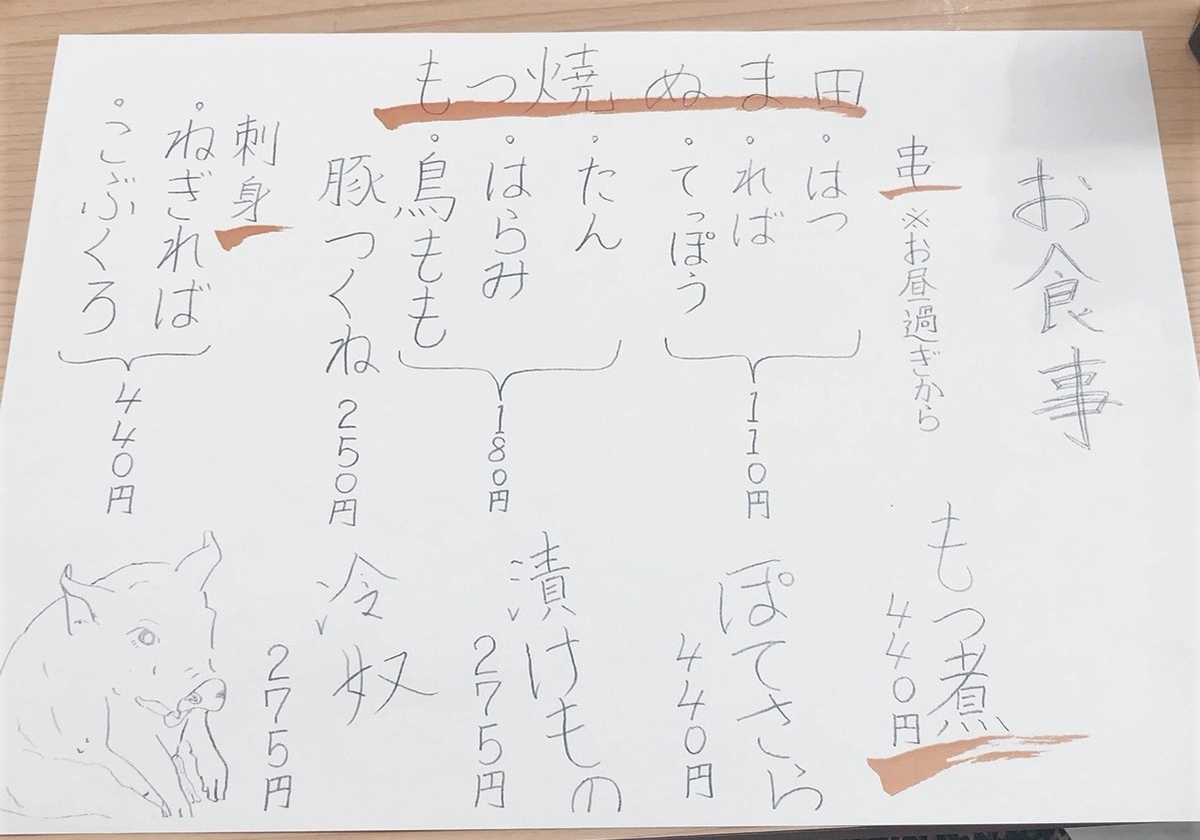 もつ焼 ぬま田
お食事
串 ※お昼過ぎから
・はつ
・れば
・てっぽう
110円
・たん
・はらみ
・鳥もも
180円
豚つくね 250円
刺身
・ねぎれば
・こぶくろ
440円
もつ煮
440円
ぽてさら
440円
漬けもの
275円
冷奴
275円